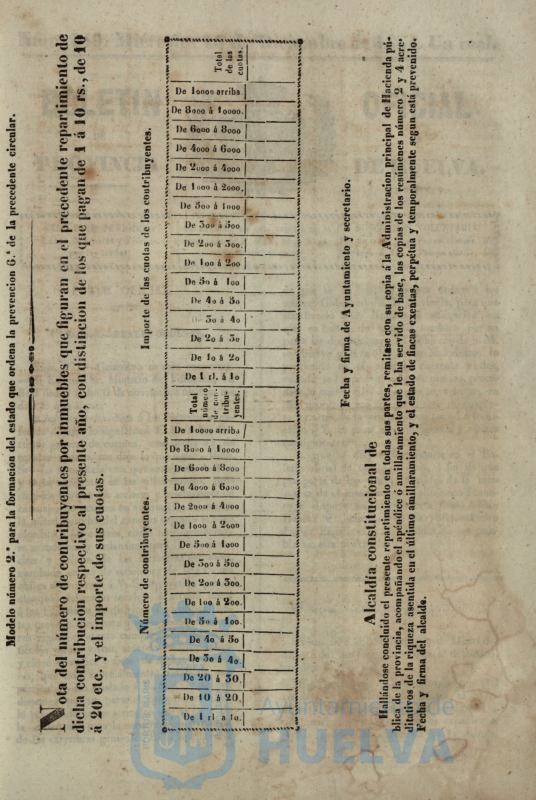 Modelo número 2.º para la formacion del estado que ordena la prevencion 6.ª de la precedente circular.
Nota del número de contribuyentes por inmuebles que figuran en el precedente repartimiento de
dicha contribucion respectivo al presente año, con distincion de los que pagan de 1 á 10 rs., de 10
á 20 etc. y el importe de sus cuotas.
Número de contribuyentes.
Importe de las cuotas de los contribuyentes.
De 1 rl. a 10.
De 10 á 20.
De 20 á 30.
De 30 á 40.
De 40 á 50
De 50 á 100.
De 100 á 200.
De 200 á 300.
De 300 á 500
De 500 á 1000
De 1000 á 2000
De 2000 á 4000
De 4000 á 6000
De 6000 á 8000
De 8000 á 10000
De 10000 arriba
Total
número
de con-
tribu-
yentes.
De 1 rl. á 10
De 10 á 20
De 20 á 30
De 30 á 40
De 40 á 50
De 50 á 100
De 100 á 200
De 200 á 300.
De 300 á 500
De 500 á 1000
De 1000 á 2000.
De 2000 á 4000
De 4000 á 6000
De 6000 á 8000
De 8000 á 10000.
De 10000 arriba
Total
de las
cuotas.
Fecha y firma de Ayuntamiento y secretario.
Alcaldía constitucional de
Hallándose concluido el presente repartimiento en todas sus partes, remítase con su copia á la Administracion principal de Hacienda pú-
blica de la provincia, acompañando el apéndice ó amillaramiento que le ha servido de base, las copias de los resúmenes número 2 y 4 acre-
ditativos de la riqueza asentida en el último amillaramiento, y el estado de fincas exentas, perpétua y temporalmente segun está prevenido.
Fecha y firma del alcalde.
Ayuntamiento de
HUELVA